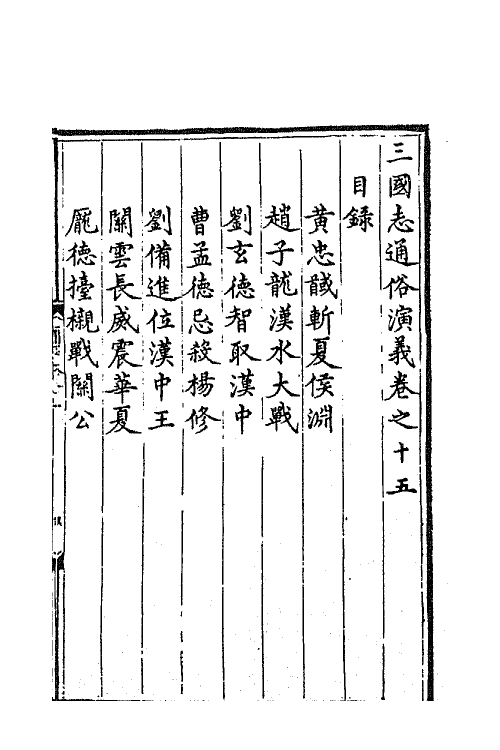 三國志通俗演義卷之十五
目録
黃忠馘斬夏侯淵
趙子龍漢水大戰
劉玄德智取漢中
曹孟德忌殺楊修
劉備進位漢中王
關雲長威震華夏
龐德擡櫬戰關公